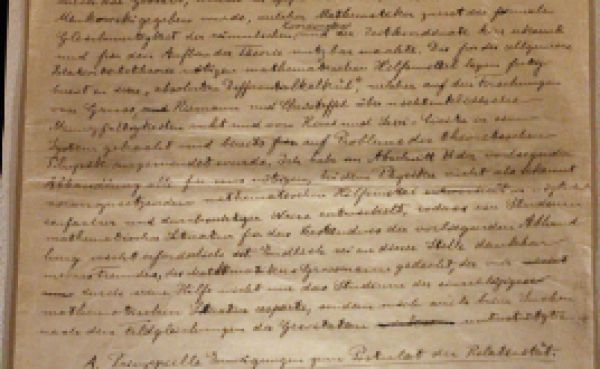 Minkowski gegeben wurde, welcher Mathematiker zuerst die formale
Gleichwertigkeit der räumlichen Koordinaten und der Zeitkoordinate klar erkannte
und für den Aufbau der Theorie nutzbar machte. Die für die allgemeine
Relativitätstheorie nötigen mathematischen Hilfsmittel lagen fertig
bereit in dem "absoluten Differentialkalkül", welcher auf den Forschungen
von Gauss, Riemann und Christoffel über nichteuklidische
Mannigfaltigkeiten ruht und von Ricci und Levi-Civita in ein
System gebracht und bereits auf Probleme der theoretischen
Physik angewendet wurde. Ich habe im Abschnitt B der vorliegenden
Abhandlung alle für uns nötigen, bei dem Physiker nicht als bekannt
vorauszusetzenden mathematischen Hilfsmittel entwickelt in
einfacher und durchsichtiger Weise entwickelt, sodass ein Studium
mathematischer Literatur für das Verständnis der vorliegenden Abhand
lung nicht erforderlich ist. Endlich sei an dieser Stelle dankbar
meines Freundes, des Mathematikers Grossmann gedacht, der mir
durch seine Hilfe nicht nur das Studium der einschlägigen
mathematischen Literatur ersparte, sondern mich auch beim Suchen
nach den Feldgleichungen der Gravitation unterstützte.
A. Prinzipielle Erwägungen zum Postulat der Relativität.